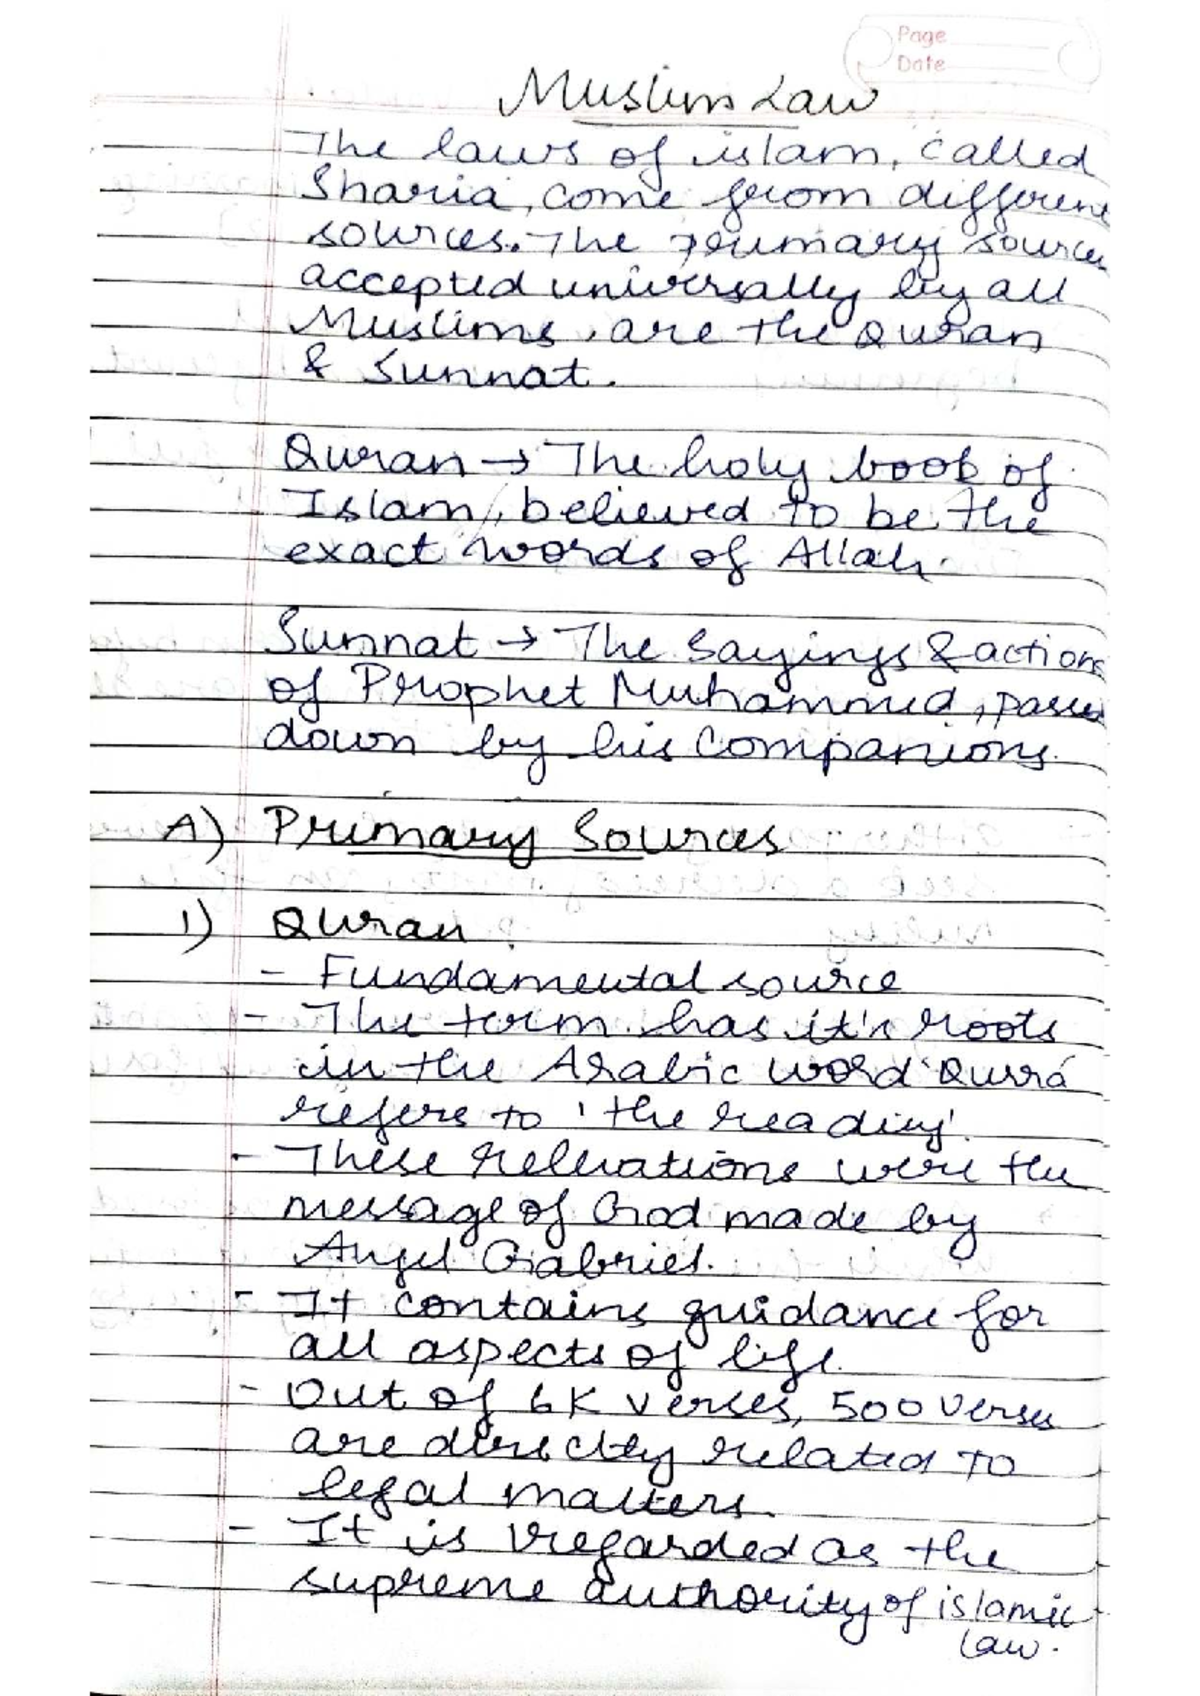 Page
Date
Muslim Law
The laws of islam, called
Sharia, come from different
sources. The primary sources
accepted universally by all
Muslims, are the Quran
& Sunnat.
Quran → The holy book of
Islam, believed to be the
exact words of Allah.
Sunnat → The sayings & actions
of Prophet Muhammud, passed
down by his companions.
A) Primary Sources
1) Quran
- Fundamental source
- The term has it's roots
in the Arabic word 'Qurra'
refers to 'the reading'.
- These relerations were the
message of God made by
Angel Gabriel.
- It contains guidance for
all aspects of life.
- Out of 6K verses, 500 verses
are directly related to
legal matters.
- It is regarded as the
supreme authority of islamic
law.